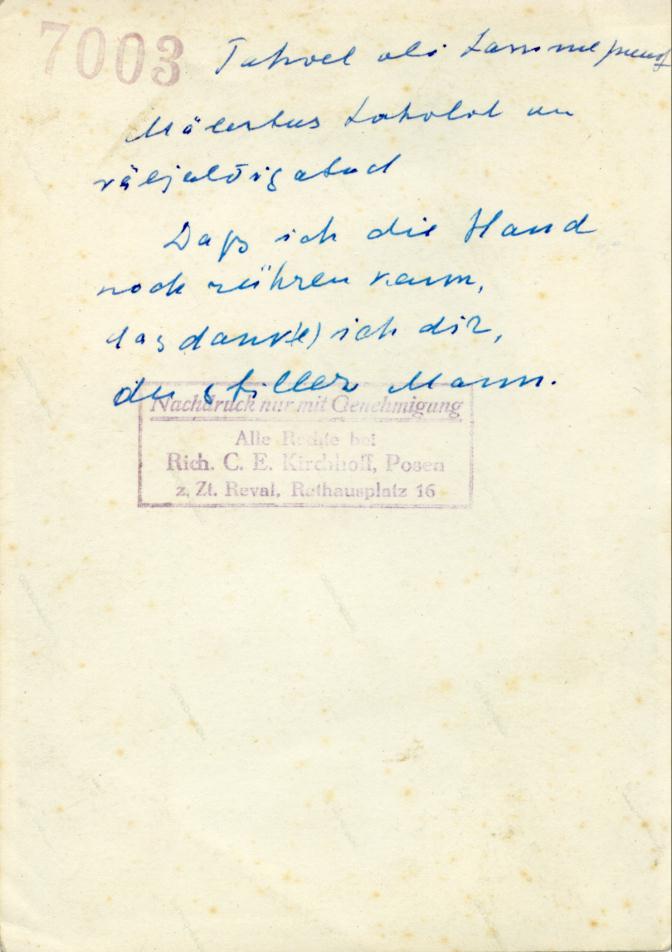 7003 Tahvel oli
Mälestus tahvlil on
väljalõigatud
Daß ich die Hand
noch rühren kann,
das dank(e) ich dir,
du stiller Mann.
Nachdruck nur mit Genehmigung
Alle Rechte bei
Rich. C. E. Kirchhoff, Posen
z. Zt. Reval, Rathausplatz 16